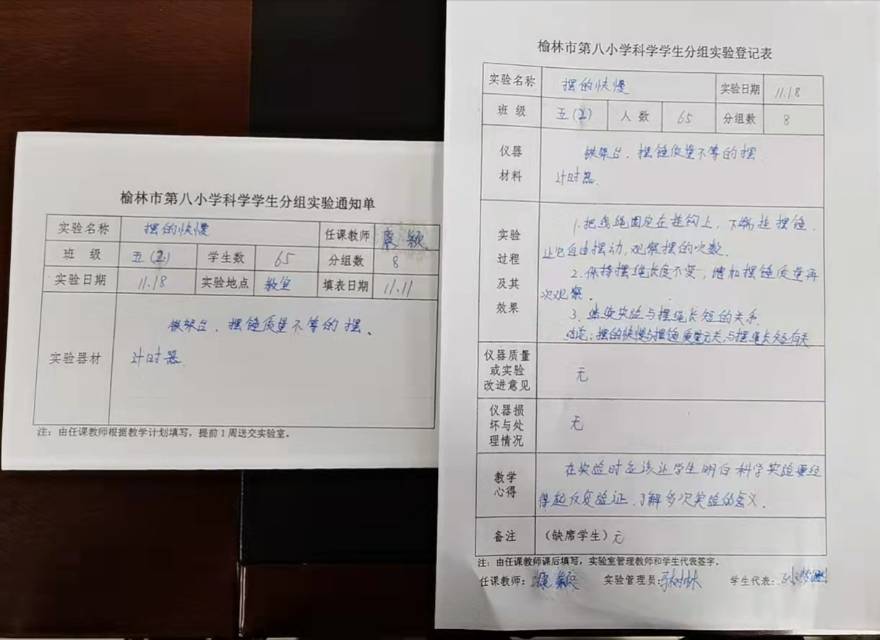 榆林市第八小学科学学生分组实验通知单
实验名称 摆的快慢 任课教师
班 级 五(2) 学生数 65 分组数 8
实验日期 11.18 实验地点 教室 填表日期 11.11
实验器材 铁架台、摆锤质量不等的摆、
计时器
注：由任课教师根据教学计划填写，提前1周送交实验室。
榆林市第八小学科学学生分组实验登记表
实验名称 摆的快慢 实验日期 11.18
班 级 五(2) 人 数 65 分组数 8
仪器
材料
铁架台、摆锤质量不等的摆
计时器
实验
过程
及其
效果
1.把线绳固定在挂钩上，下端挂摆锤，
让它自由摆动，观察摆的次数。
2.保持摆绳长度不变，增加摆锤质量再
次观察。
3.继续实验与摆绳长短的关系.
结论：摆的快慢与摆锤质量无关，与摆绳长短有关
仪器质量
或实验
改进意见
无
仪器损
坏与处
理情况
无
教学
心得
在实验时应该让学生明白科学实验要经
得起反复验证，了解多次实验的含义。
备注 (缺席学生) 无
注：由任课教师课后填写，实验室管理教师和学生代表签字。
任课教师： 实验管理员： 学生代表：